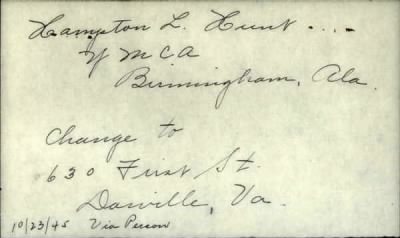 Hampton L. Hunt ...
Y M C A
Birmingham, Ala.
Change to
630 First St.
Danville, Va.
10/23/45 Via Person